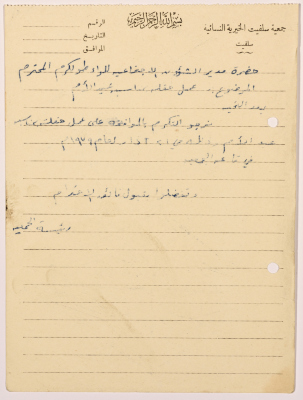 بسم الله الرحمن الرحيم
جمعية سلفيت الخيرية النسائية
سلفيت
الرقم
التاريخ
الموافق
حضرة مدير الشؤون الاجتماعية للواء طولكرم المحترم
الموضوع :- عمل حفلة بمناسبة عيد الأم
بعد التحية
نرجو التكرم بالموافقة على عمل حفلة
عيد الأم وذلك في ٢١ آذار لعام
في قاعة
وتفضلوا بقبول فائق الاحترام
رئيسة الجمعية